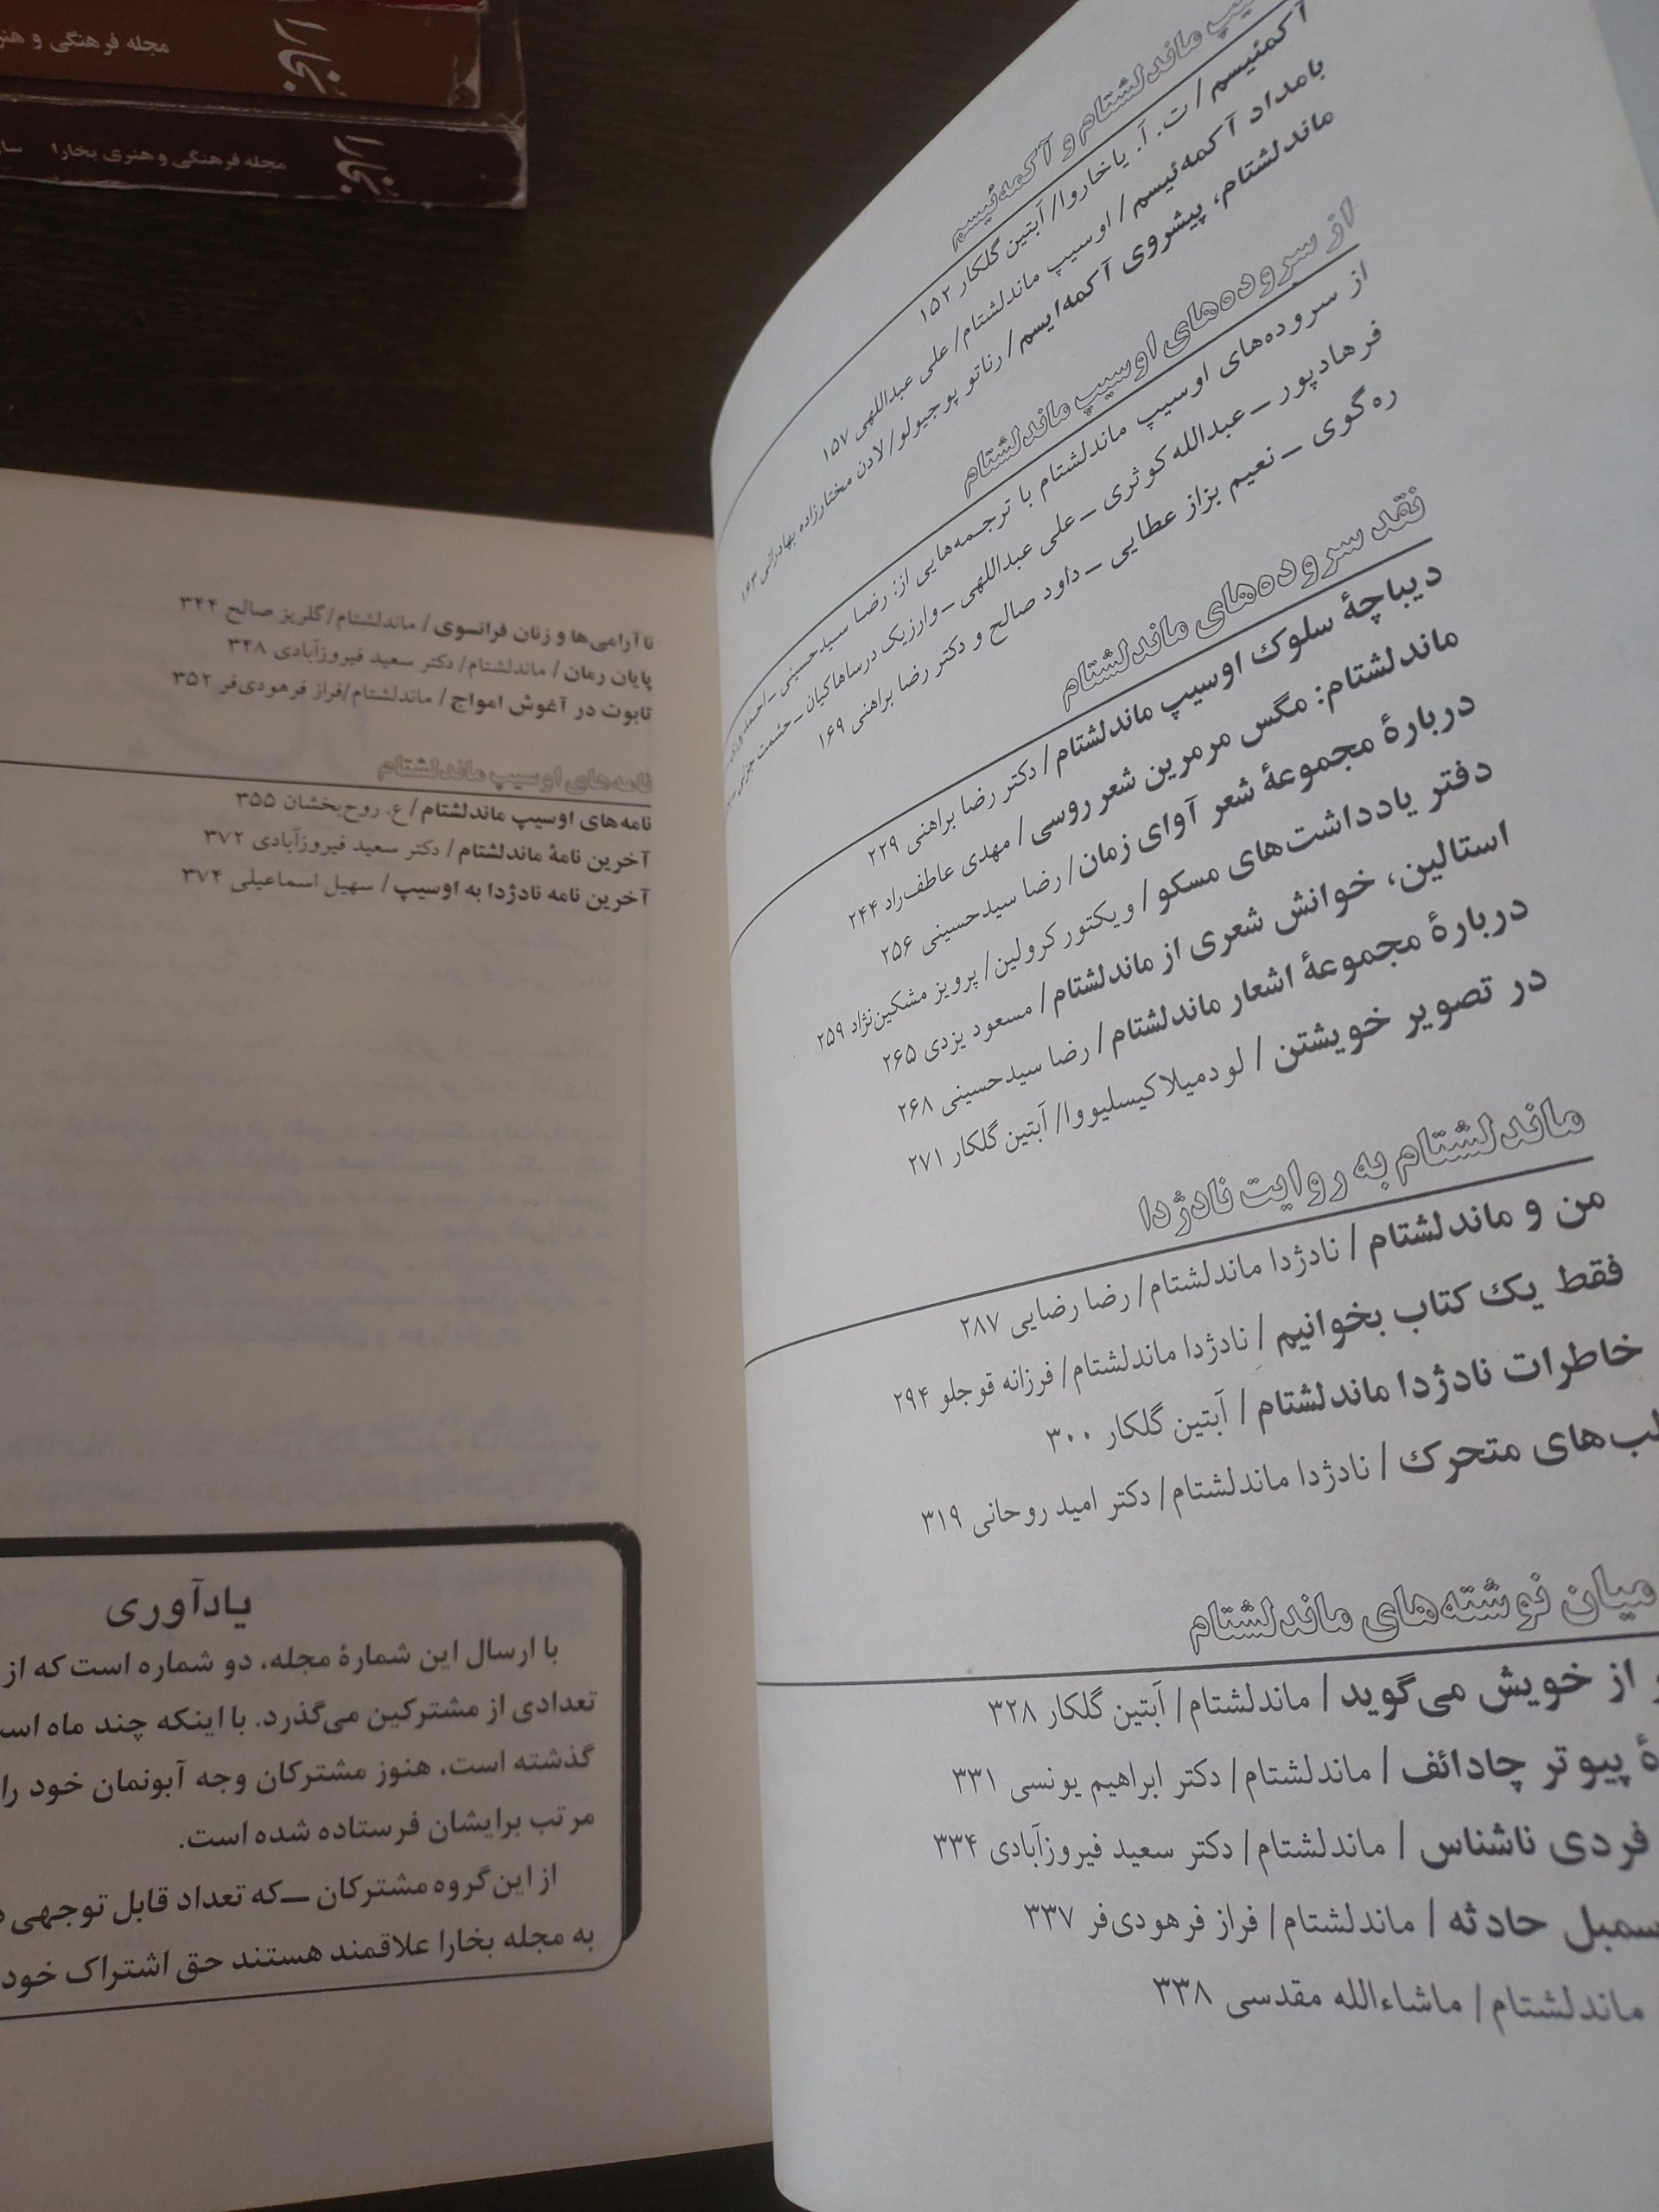 بخارا
مجله فرهنگی و هنری
بخارا
مجله فرهنگی و هنری بخارا
ماندلشتام و آکمه‌ئیسم
آکمئیسم / ت. آ. یاخاروا/ آبتین گلکار ۱۵۲
بامداد آکمه‌ئیسم / اوسیپ ماندلشتام/ علی عبداللهی ۱۵۷
ماندلشتام، پیشروی آکمه‌ایسم / رناتو پوجیولو/ لادن مختارزاده بهادرانی ۱۶۳
از سروده‌های اوسیپ ماندلشتام
از سروده‌های اوسیپ ماندلشتام با ترجمه‌هایی از: رضا سیدحسینی ــ احمد
فرهادپور ــ عبدالله کوثری ــ علی عبداللهی ــ وارزیک درساهاکیان ــ حشمت
ره‌گوی ــ نعیم بزاز عطایی ــ داود صالح و دکتر رضا براهنی ۱۶۹
نقد سروده‌های ماندلشتام
دیباچهٔ سلوک اوسیپ ماندلشتام/ دکتر رضا براهنی ۲۲۹
ماندلشتام: مگس مرمرین شعر روسی / مهدی عاطف‌راد ۲۴۴
دربارهٔ مجموعهٔ شعر آوای زمان/ رضا سیدحسینی ۲۵۶
دفتر یادداشت‌های مسکو / ویکتور کرولین/ پرویز مشکین‌نژاد ۲۵۹
استالین، خوانش شعری از ماندلشتام/ مسعود یزدی ۲۶۵
دربارهٔ مجموعهٔ اشعار ماندلشتام/ رضا سیدحسینی ۲۶۸
در تصویر خویشتن / لودمیلا کیسلیووا/ آبتین گلکار ۲۷۱
ماندلشتام به روایت نادژدا
من و ماندلشتام / نادژدا ماندلشتام/ رضا رضایی ۲۸۷
فقط یک کتاب بخوانیم / نادژدا ماندلشتام/ فرزانه قوجلو ۲۹۴
خاطرات نادژدا ماندلشتام / آبتین گلکار ۳۰۰
لب‌های متحرک / نادژدا ماندلشتام/ دکتر امید روحانی ۳۱۹
میان نوشته‌های ماندلشتام
از خویش می‌گوید / ماندلشتام/ آبتین گلکار ۳۲۸
پیوتر چادائف / ماندلشتام/ دکتر ابراهیم یونسی ۳۳۱
فردی ناشناس / ماندلشتام/ دکتر سعید فیروزآبادی ۳۳۴
سمبل حادثه / ماندلشتام/ فراز فرهودی‌فر ۳۳۷
ماندلشتام/ ماشاءالله مقدسی ۳۳۸
ناآرامی‌ها و زنان فرانسوی / ماندلشتام/گلریز صالح ۳۴۴
پایان رمان / ماندلشتام/ دکتر سعید فیروزآبادی ۳۴۸
تابوت در آغوش امواج / ماندلشتام/فراز فرهودی‌فر ۳۵۲
نامه‌های اوسیپ ماندلشتام
نامه‌های اوسیپ ماندلشتام/ ع. روح‌بخشان ۳۵۵
آخرین نامهٔ ماندلشتام / دکتر سعید فیروزآبادی ۳۷۲
آخرین نامه نادژدا به اوسیپ / سهیل اسماعیلی ۳۷۴
یادآوری
با ارسال این شمارهٔ مجله، دو شماره است که از
تعدادی از مشترکین می‌گذرد. با اینکه چند ماه
گذشته است، هنوز مشترکان وجه آبونمان خود را
مرتب برایشان فرستاده شده است.
از این گروه مشترکان ــ که تعداد قابل توجهی
به مجله بخارا علاقمند هستند حق اشتراک خود